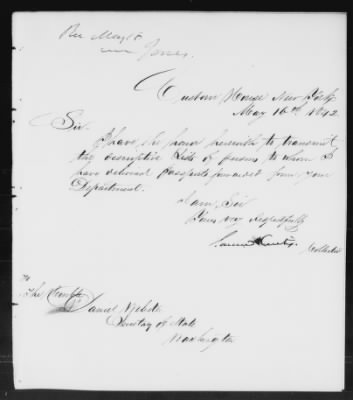 Rec May 18
Mr Jones.
Custom House New York
May 16th 1842.
Sir.
I have the honor herewith to transmit
the descriptive Lists of persons to whom I
have delivered Passports forwarded from your
Department.
I am, Sir
Yours very respectfully
Collector
To
The Honble
Daniel Webster
Secretary of State
Washington